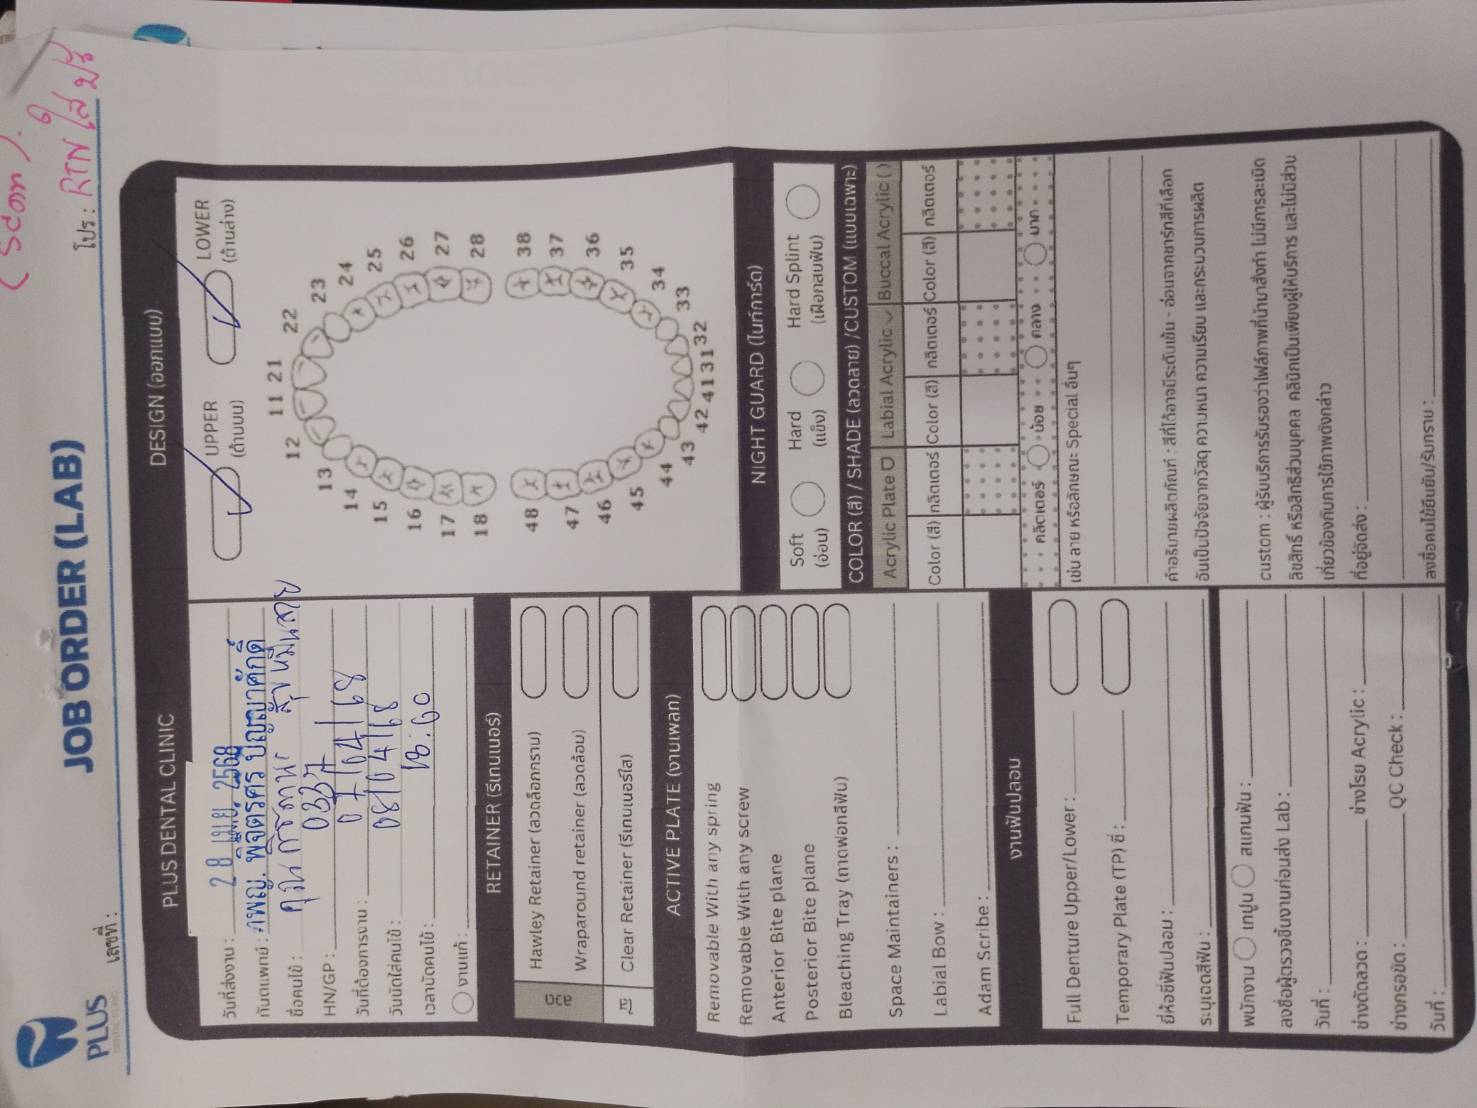 (Scan).
PLUS
DENTAL CLINIC
JOB ORDER (LAB)
เลขที่ :
โปร : RTN ใส ฟรี
PLUS DENTAL CLINIC
วันที่สั่งงาน : 28 เม.ย. 2568
ทันตแพทย์ : ทพญ. พิจิตรศิริ ปัญญาศักดิ์
ชื่อคนไข้ : คุณ
HN/GP : 0337
วันที่ต้องการงาน : 07/04/68
วันนัดใส่คนไข้ : 08/04/68
เวลานัดคนไข้ : 13.00
งานแก้ :
RETAINER (รีเทนเนอร์)
ลวด
Hawley Retainer (ลวดล็อกกราม)
Wraparound retainer (ลวดล้อม)
ใส
Clear Retainer (รีเทนเนอร์ใส)
ACTIVE PLATE (งานเพลท)
Removable With any spring
Removable With any screw
Anterior Bite plane
Posterior Bite plane
Bleaching Tray (ถาดฟอกสีฟัน)
Space Maintainers :
Labial Bow :
Adam Scribe :
งานฟันปลอม
Full Denture Upper/Lower :
Temporary Plate (TP) ซี่ :
ยี่ห้อซี่ฟันปลอม :
ระบุเฉดสีฟัน :
พนักงาน เทปูน สแกนฟัน :
ลงชื่อผู้ตรวจชิ้นงานก่อนส่ง Lab :
วันที่ :
ช่างดัดลวด : ช่างโรย Acrylic :
ช่างกรอขัด : QC Check :
วันที่ :
DESIGN (ออกแบบ)
UPPER (ด้านบน)
LOWER (ด้านล่าง)
12 11 21 22
13 23
14 24
15 25
16 26
17 27
18 28
48 38
47 37
46 36
45 35
44 34
43 33
42 41 31 32
NIGHT GUARD (ไนท์การ์ด)
Soft (อ่อน)
Hard (แข็ง)
Hard Splint (เฝือกสบฟัน)
COLOR (สี) / SHADE (ลวดลาย) /CUSTOM (แบบเฉพาะ)
Acrylic Plate Labial Acrylic Buccal Acrylic ( )
Color (สี) กลิตเตอร์ Color (สี) กลิตเตอร์ Color (สี) กลิตเตอร์
กลิตเตอร์ น้อย กลาง มาก
เช่น ลาย หรือลักษณะ Special อื่นๆ
คำอธิบายผลิตภัณฑ์ : สีที่ได้อาจมีระดับเข้ม - อ่อนจากชาร์ทสีที่เลือก
อันเป็นปัจจัยจากวัสดุ ความหนา ความเรียบ และกระบวนการผลิต
custom : ผู้รับบริการรับรองว่าไฟล์ภาพที่นำมาสั่งทำ ไม่มีการละเมิด
ลิขสิทธิ์ หรือสิทธิ์ส่วนบุคคล คลินิกเป็นเพียงผู้ให้บริการ และไม่มีส่วน
เกี่ยวข้องกับการใช้ภาพดังกล่าว
ที่อยู่จัดส่ง :
ลงชื่อคนไข้ยืนยัน/รับทราบ :